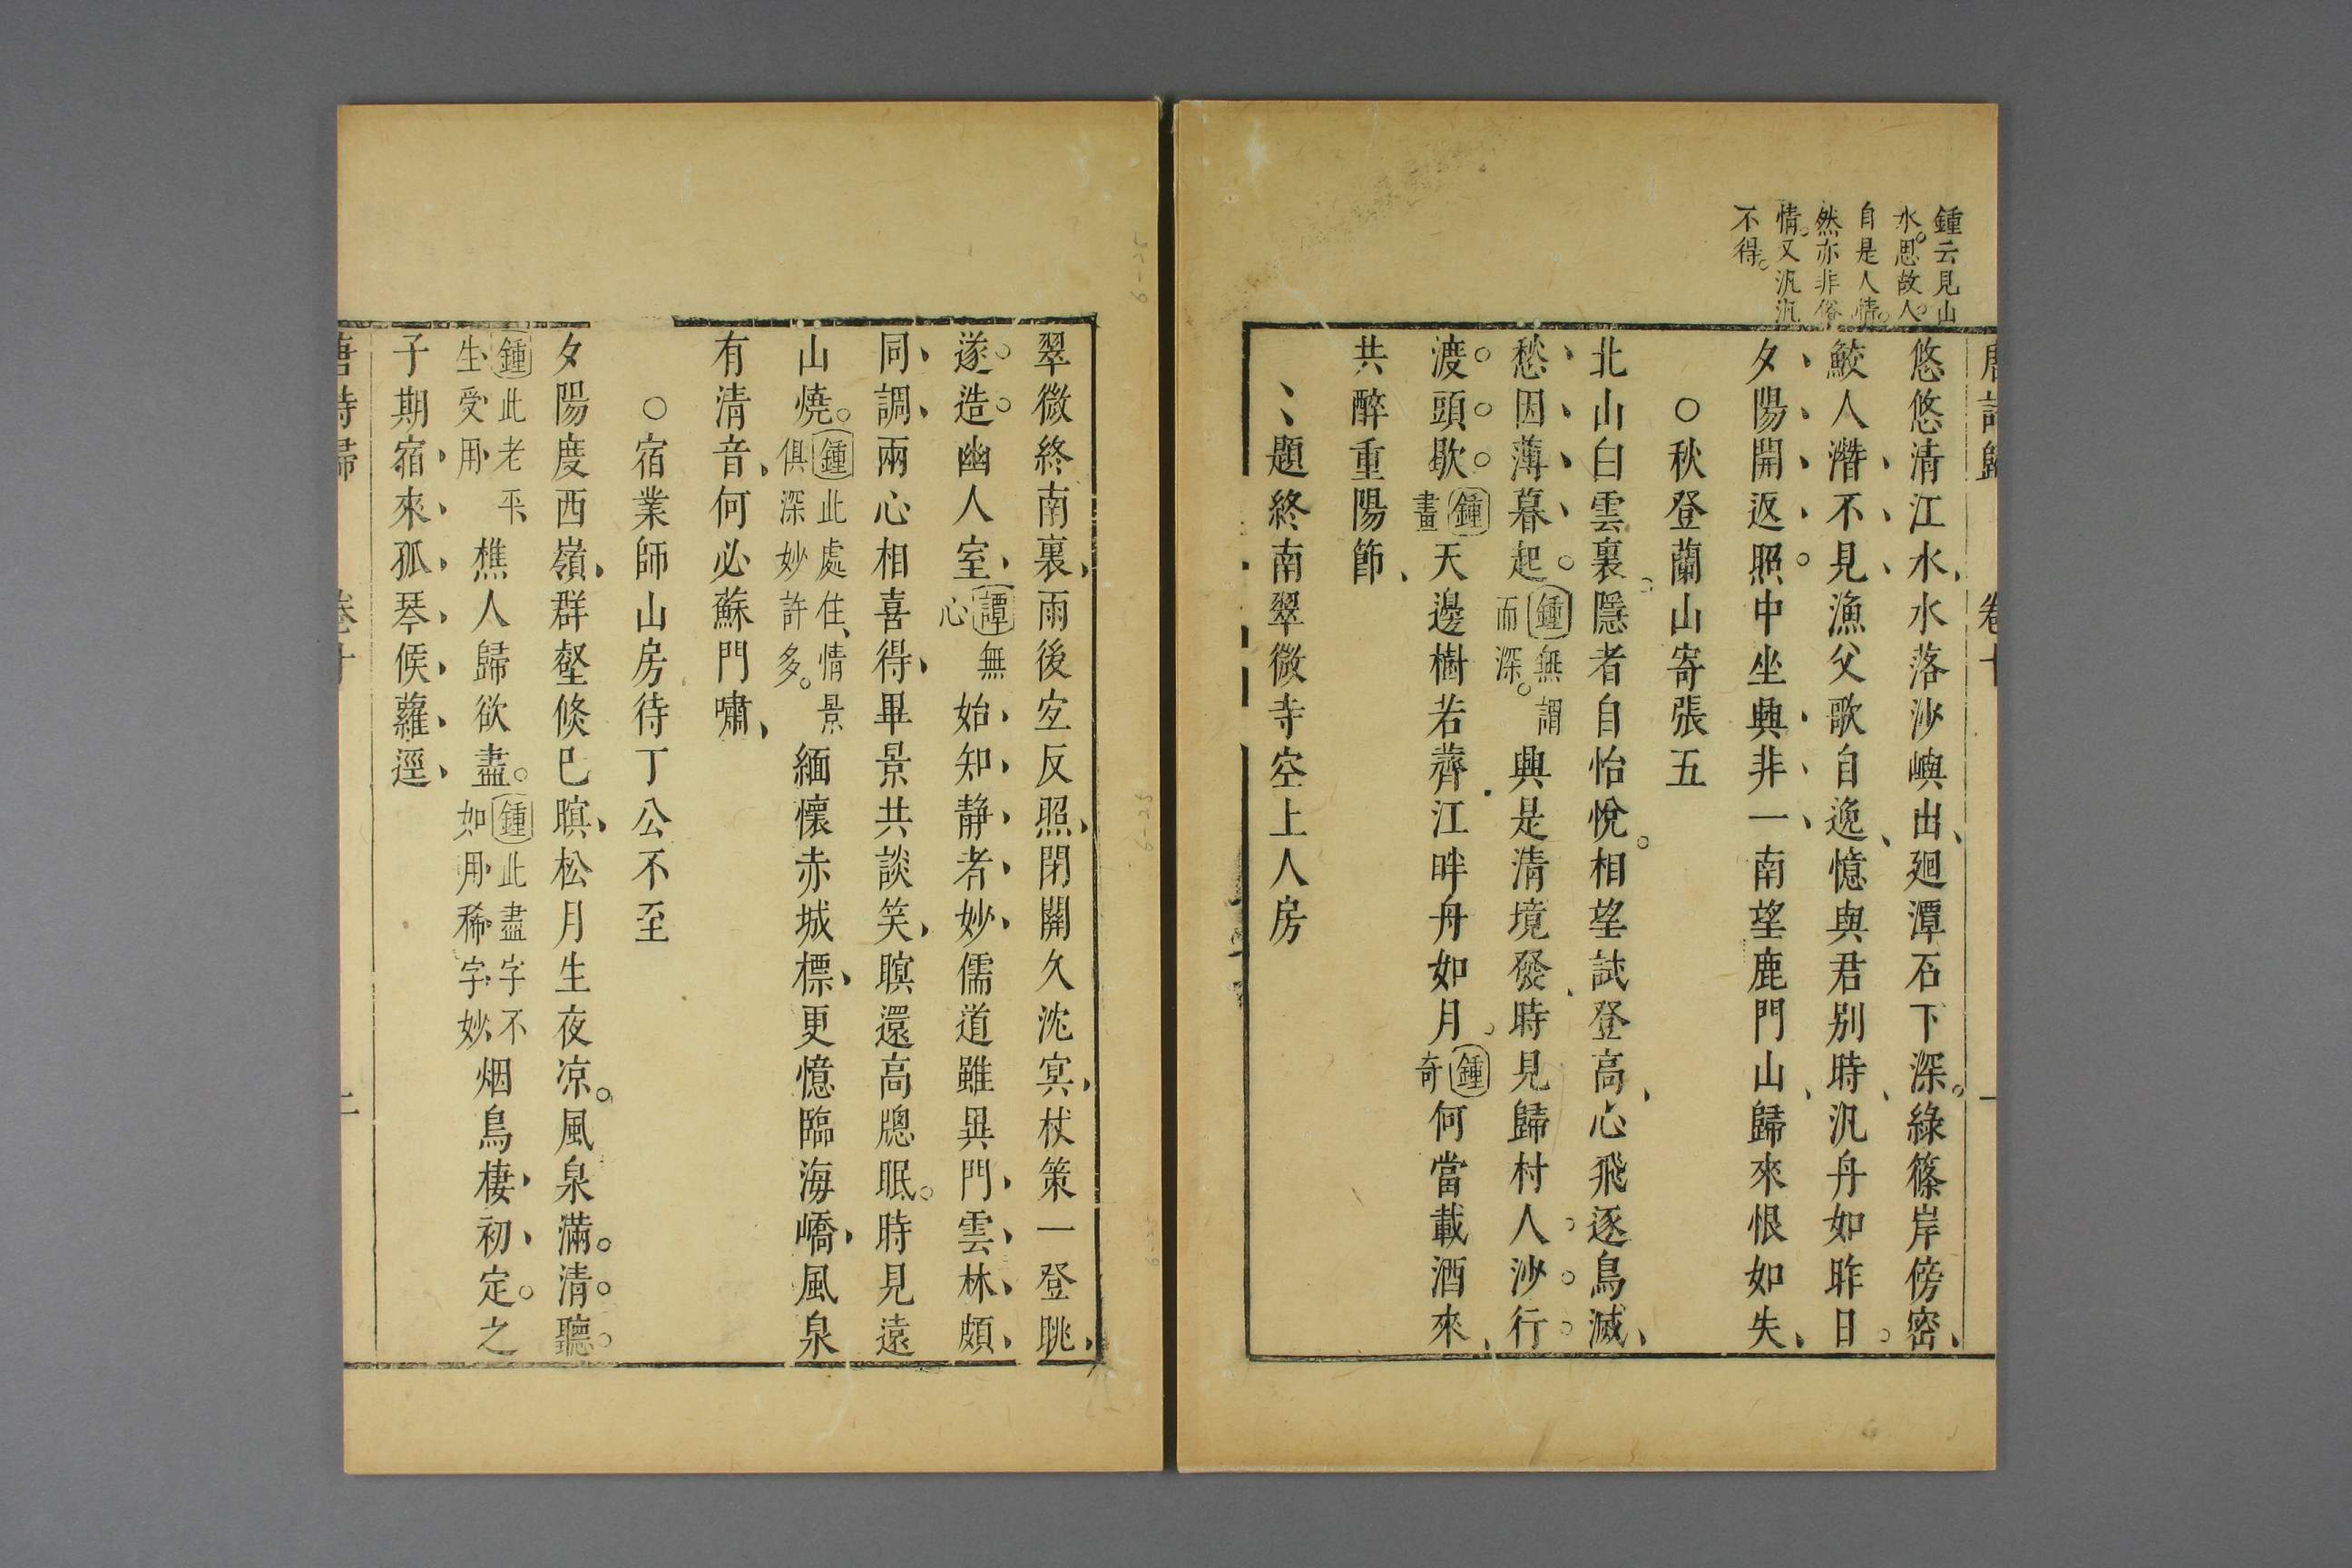 鍾云見山
水思故人
自是人情
然亦非俗
情又汎汎
不得
唐詩歸 卷十
悠悠清江水水落沙嶼出廻潭石下深綠篠岸傍密
鮫人潛不見漁父歌自逸憶與君別時汎舟如昨日
夕陽開返照中坐興非一南望鹿門山歸來恨如失
○秋登蘭山寄張五
北山白雲裏隱者自怡悅相望試登高心飛逐鳥滅
愁因薄暮起鍾無謂而深興是清境發時見歸村人沙行
渡頭歇鍾畫天邊樹若薺江畔舟如月鍾奇何當載酒來
共醉重陽節
題終南翠微寺空上人房
翠微終南裏雨後宐反照閉關久沈冥杖策一登眺
遂造幽人室譚無心始知静者妙儒道雖異門雲林頗
同調兩心相喜得畢景共談笑暝還高牕眠時見遠
山燒鍾此處住情景俱深妙許多緬懷赤城標更憶臨海嶠風泉
有清音何必蘇門嘯
○宿業師山房待丁公不至
夕陽度西嶺群壑倐巳暝松月生夜凉風泉滿清聽
鍾此老平生受用樵人歸欲盡鍾此盡字不如用稀字妙烟鳥棲初定之
子期宿來孤琴候蘿逕
唐詩歸 卷十